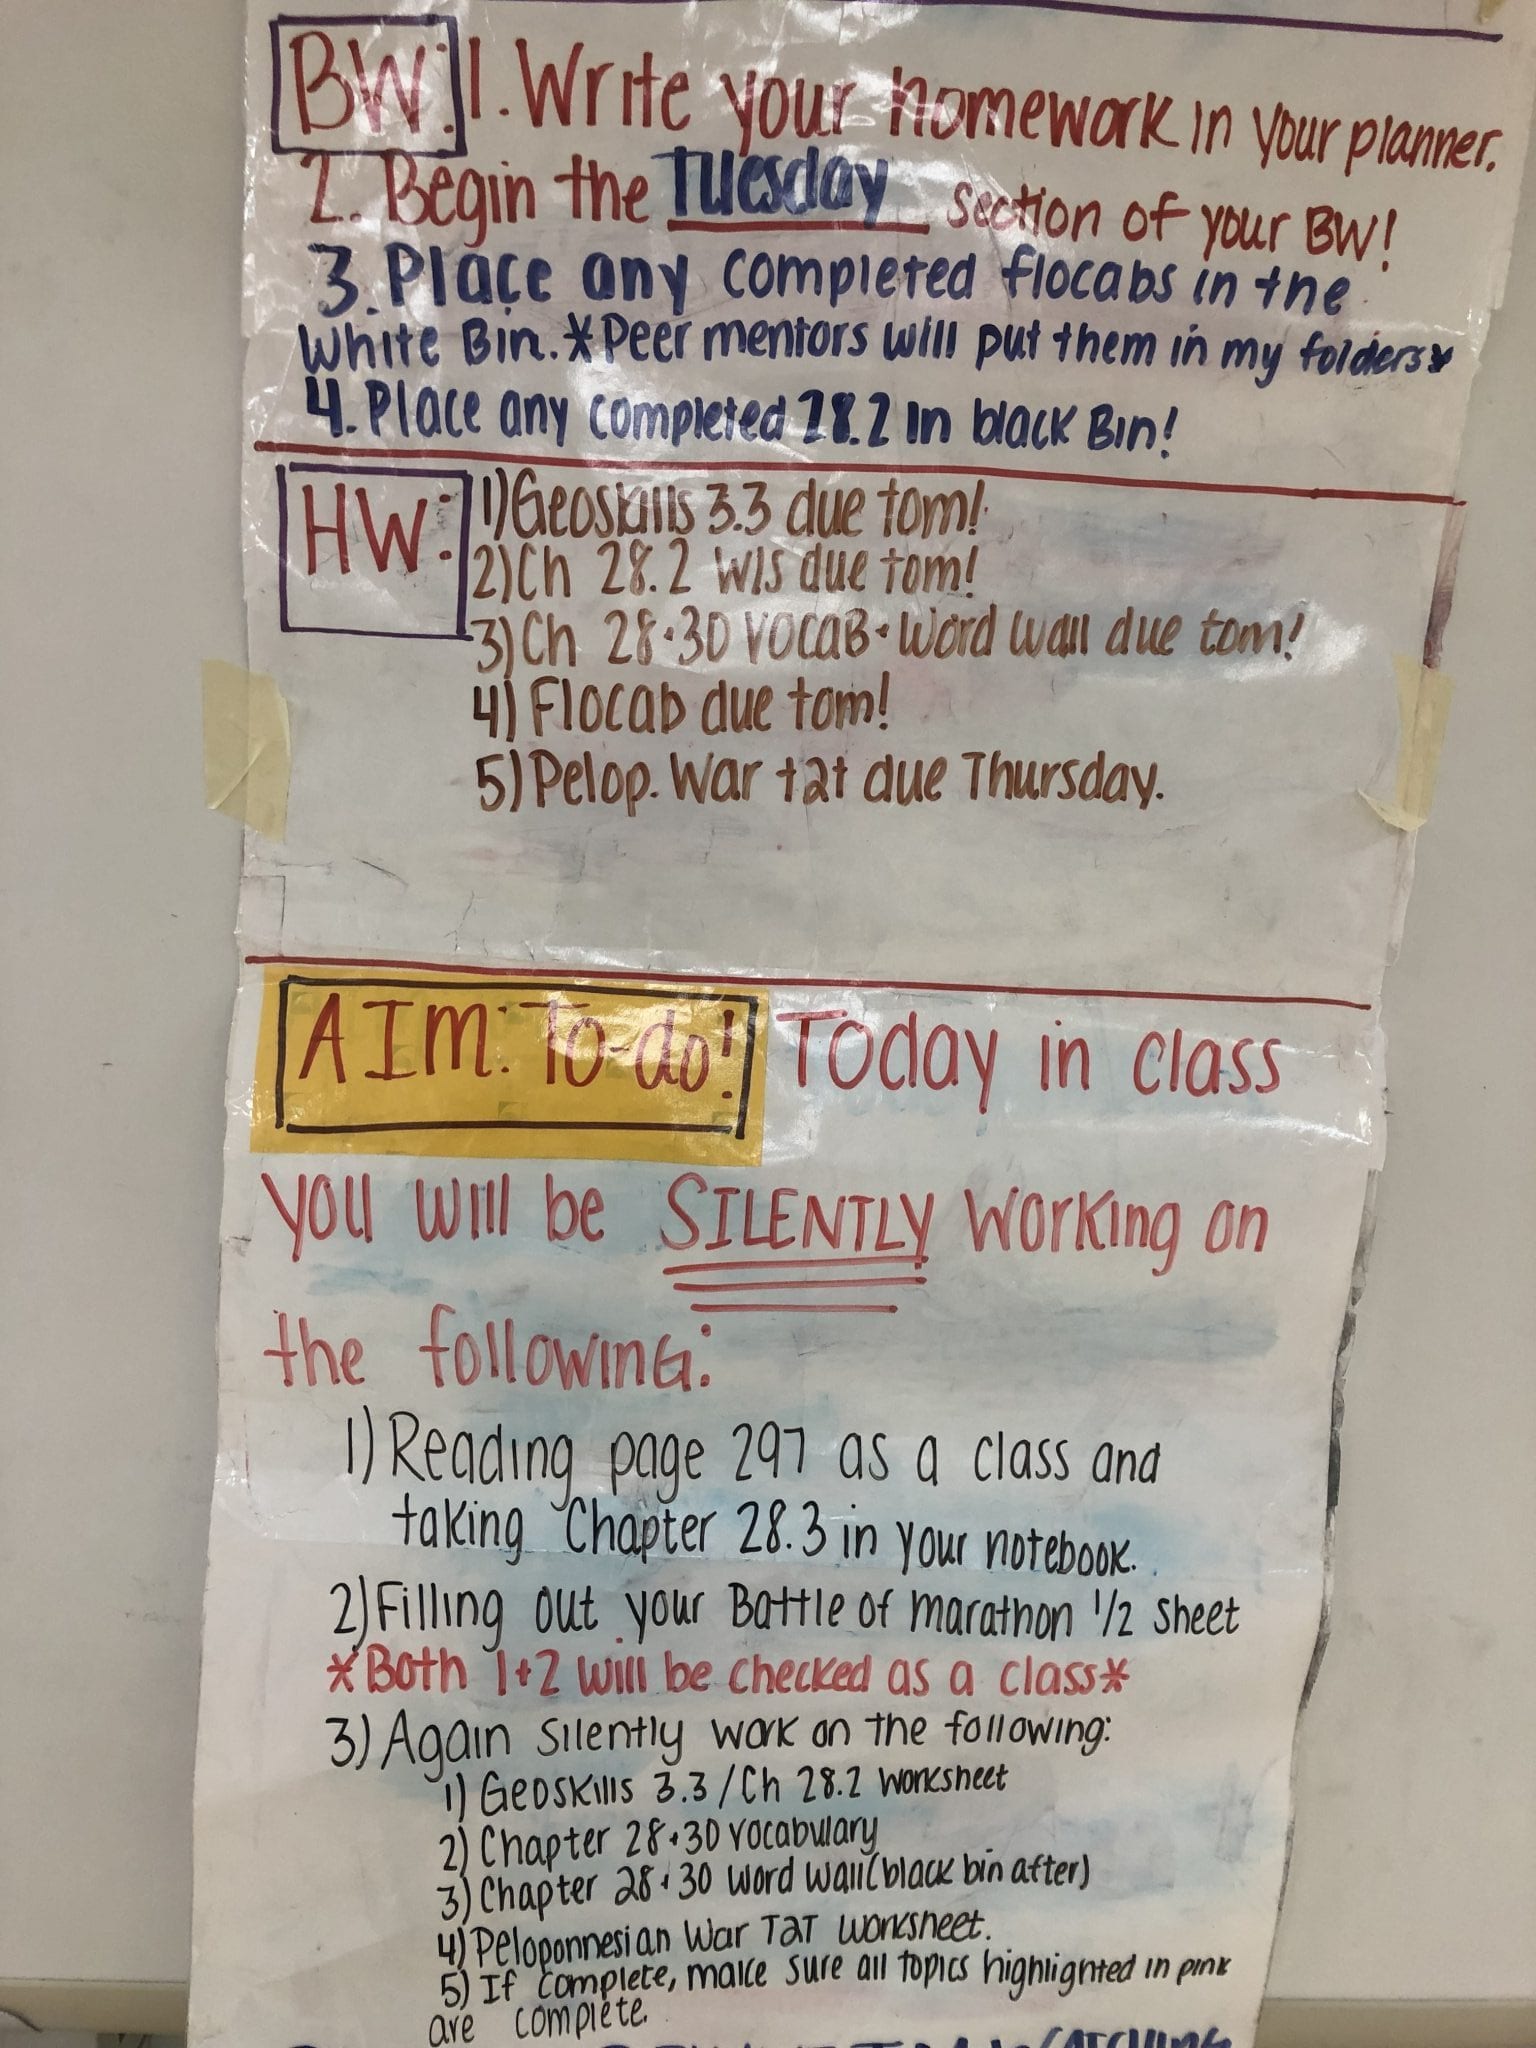 BW: 1. Write your homework in your planner.
2. Begin the Tuesday section of your BW!
3. Place any completed flocabs in the
White Bin. *Peer mentors will put them in my folders*
4. Place any completed 28.2 in black Bin!
HW: 1) Geoskills 3.3 due tom!
2) Ch 28.2 W/s due tom!
3) Ch 28+30 vocab + Word wall due tom!
4) Flocab due tom!
5) Pelop. War t2t due Thursday.
AIM: To-do! Today in class
you will be SILENTLY working on
the following:
1) Reading page 297 as a class and
taking Chapter 28.3 in your notebook.
2) Filling out your Battle of marathon 1/2 sheet
*Both 1+2 will be checked as a class*
3) Again silently work on the following:
1) Geoskills 3.3 / Ch 28.2 worksheet
2) Chapter 28+30 vocabulary
3) Chapter 28+30 word wall (black bin after)
4) Peloponnesian War T2T worksheet.
5) If complete, make sure all topics highlighted in pink
are complete.
CATCHING